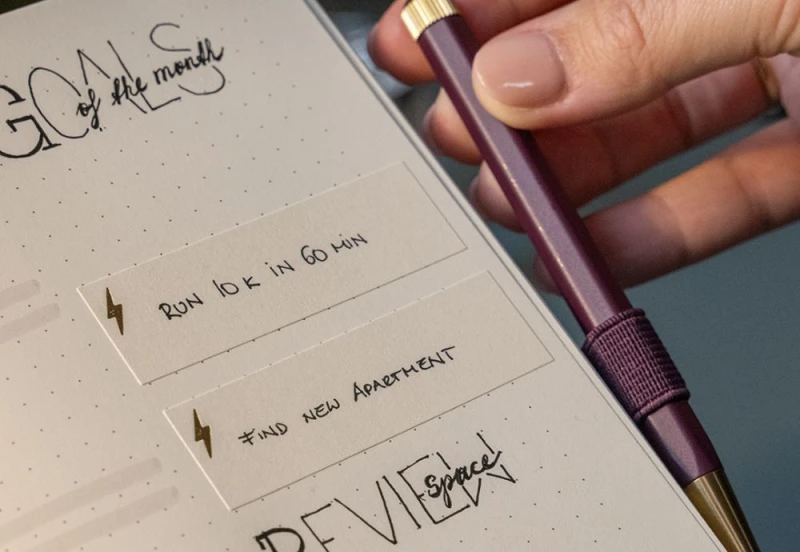 GOALS
of the month
RUN 10 K IN 60 MIN
FIND NEW APARTMENT
REVIEW
Space